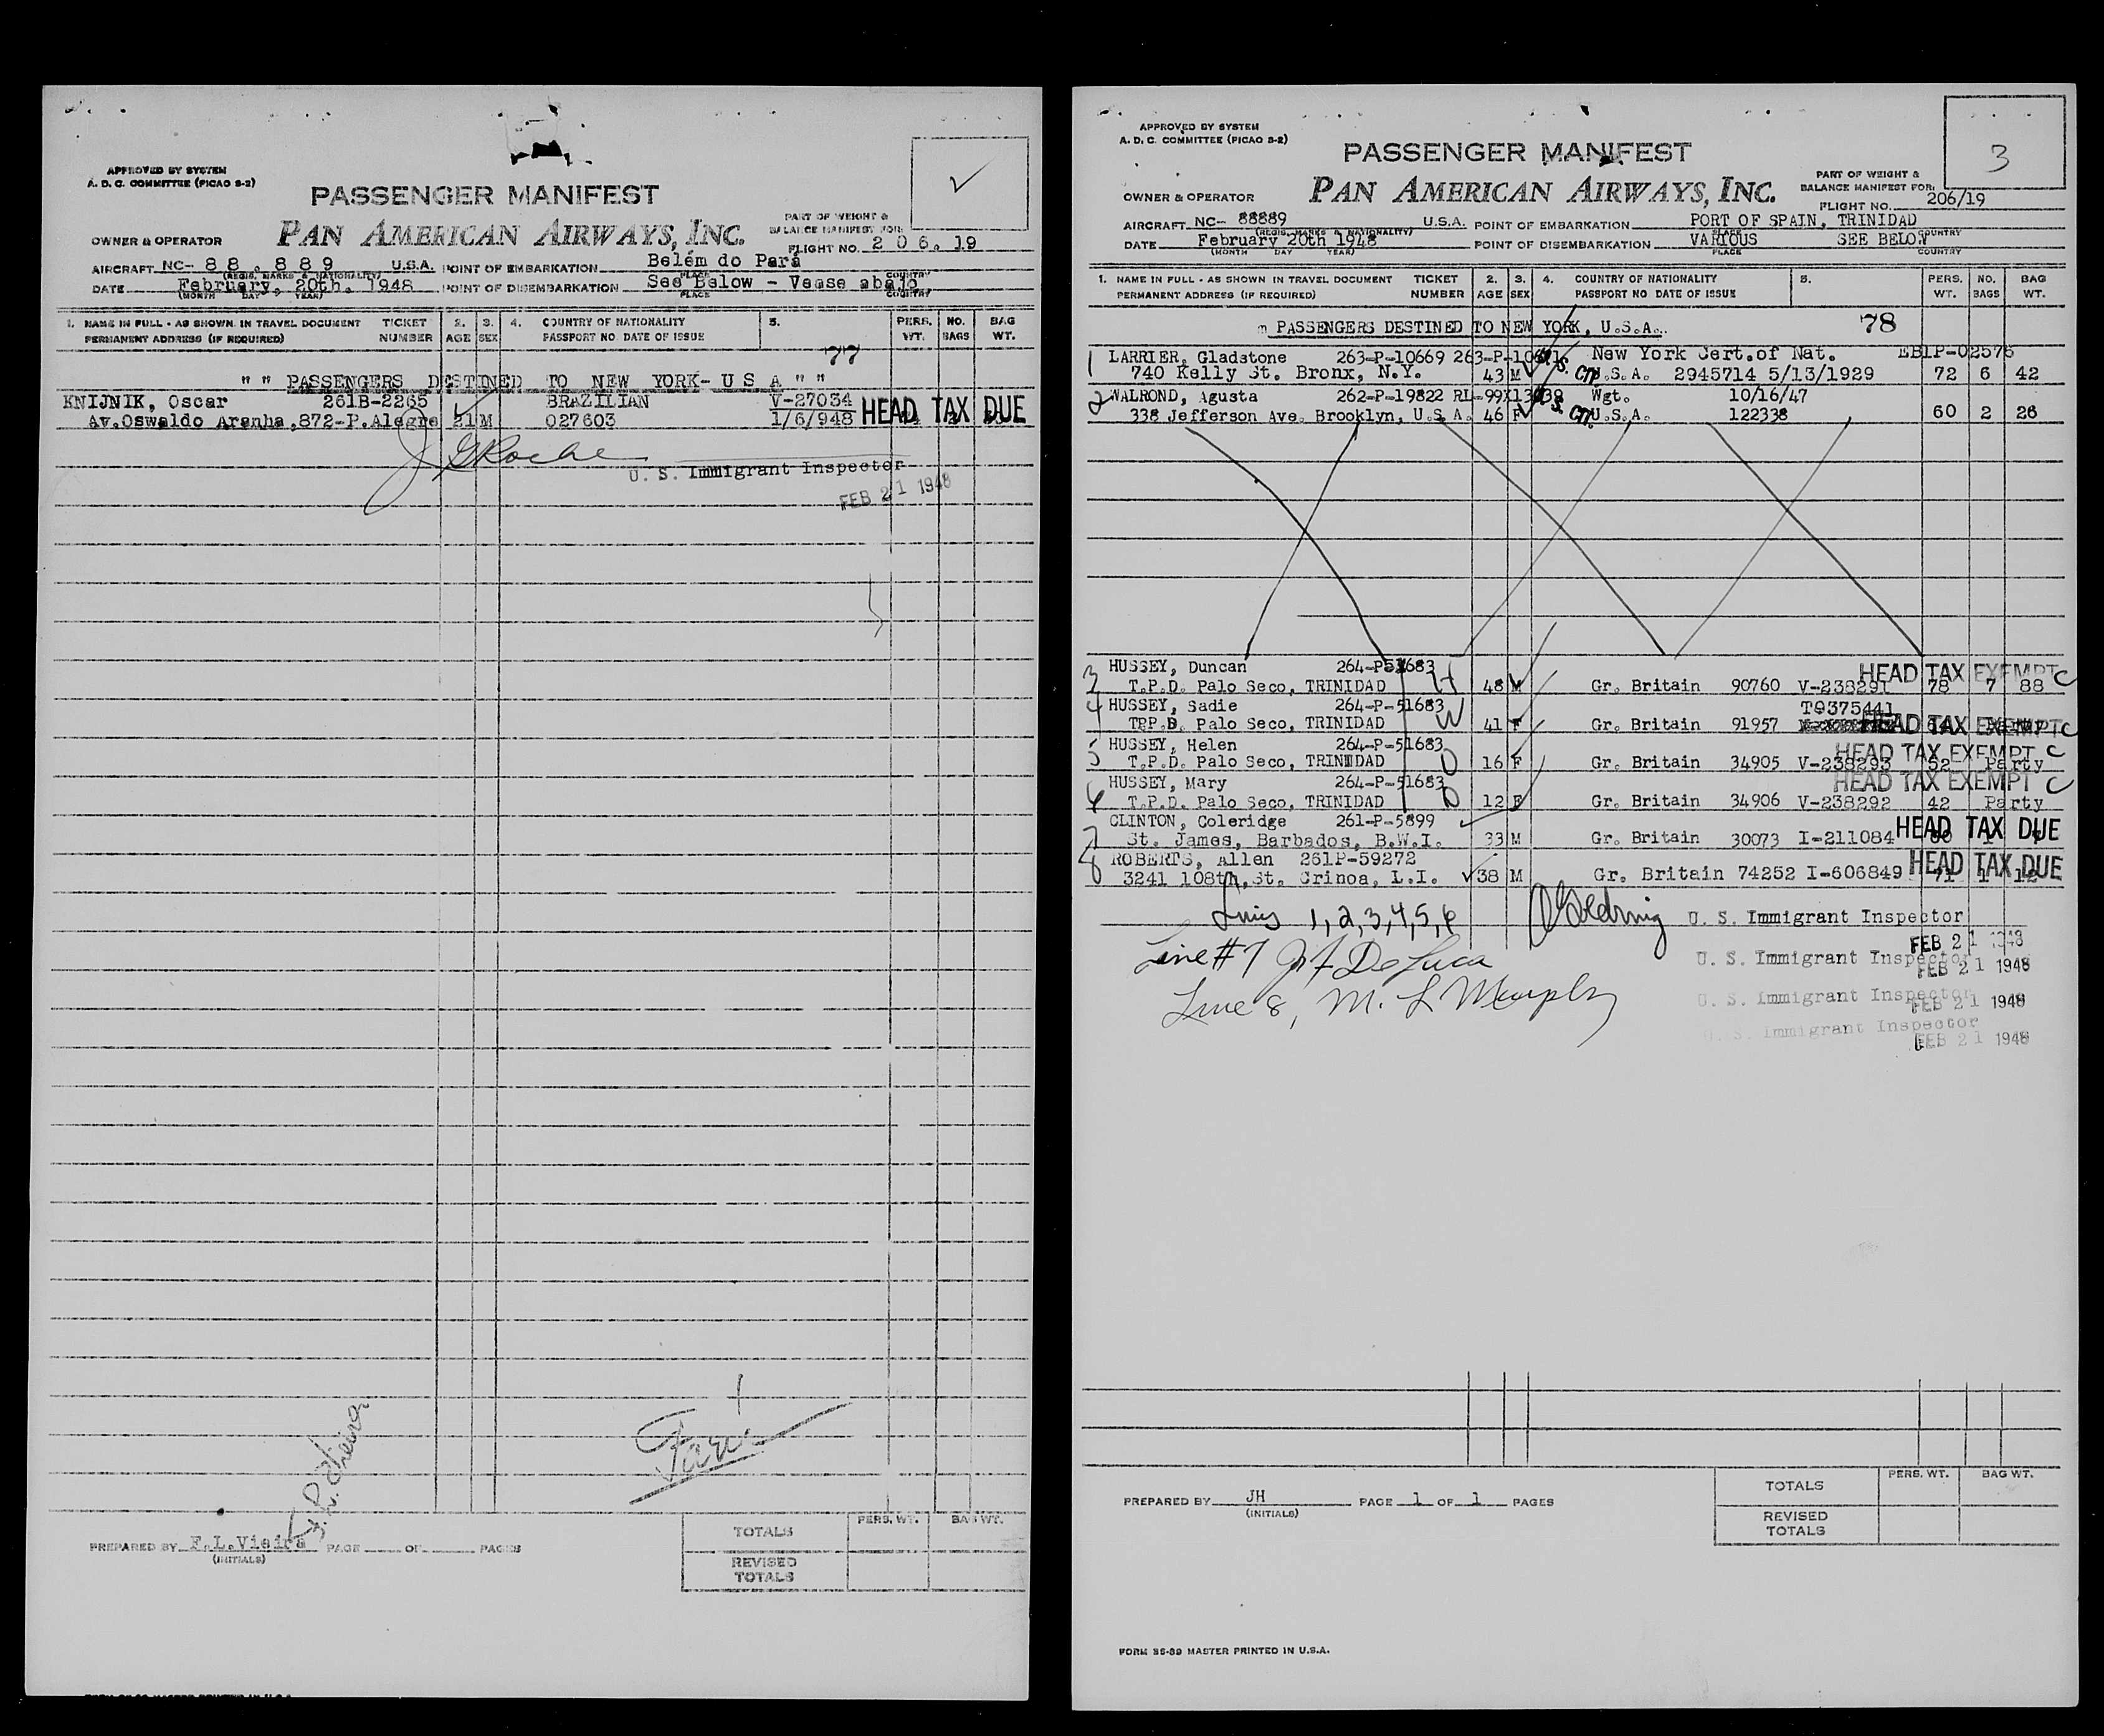 APPROVED BY SYSTEM
A. D. C. COMMITTEE (PICAO S-2)
✓
PASSENGER MANIFEST
PART OF WEIGHT &
BALANCE MANIFEST FOR:
OWNER & OPERATOR PAN AMERICAN AIRWAYS, INC. FLIGHT NO. 206.19
AIRCRAFT NC- 88.889 U.S.A. POINT OF EMBARKATION Belém do Pará
(REGIS. MARKS & NATIONALITY) PLACE COUNTRY
DATE February, 20th, 1948 POINT OF DISEMBARKATION See Below - Vease abajo
(MONTH DAY YEAR) PLACE COUNTRY
1. NAME IN FULL - AS SHOWN IN TRAVEL DOCUMENT TICKET 2. 3. 4. COUNTRY OF NATIONALITY 5. PERS. NO. BAG
PERMANENT ADDRESS (IF REQUIRED) NUMBER AGE SEX PASSPORT NO DATE OF ISSUE WT. BAGS WT.
77
" " PASSENGERS DESTINED TO NEW YORK- U S A " "
KNIJNIK, Oscar 261B-2265 BRAZILIAN V-27034
Av.Oswaldo Aranha,872-P.Alegre 21 M 027603 1/6/948 HEAD TAX DUE
U. S. Immigrant Inspector
FEB 21 1948
PREPARED BY F.L.Vieira PAGE OF PAGES
(INITIALS)
PERS. WT. BAG WT.
TOTALS
REVISED
TOTALS
APPROVED BY SYSTEM
A. D. C. COMMITTEE (PICAO S-2)
3
PASSENGER MANIFEST
PART OF WEIGHT &
BALANCE MANIFEST FOR:
OWNER & OPERATOR PAN AMERICAN AIRWAYS, INC. FLIGHT NO. 206/19
AIRCRAFT NC- 88889 U.S.A. POINT OF EMBARKATION PORT OF SPAIN, TRINIDAD
(REGIS. MARKS & NATIONALITY) PLACE COUNTRY
DATE February 20th 1948 POINT OF DISEMBARKATION VARIOUS SEE BELOW
(MONTH DAY YEAR) PLACE COUNTRY
1. NAME IN FULL - AS SHOWN IN TRAVEL DOCUMENT TICKET 2. 3. 4. COUNTRY OF NATIONALITY 5. PERS. NO. BAG
PERMANENT ADDRESS (IF REQUIRED) NUMBER AGE SEX PASSPORT NO DATE OF ISSUE WT. BAGS WT.
PASSENGERS DESTINED TO NEW YORK, U.S.A. 78
1 LARRIER, Gladstone 263-P-10669 New York Cert.of Nat. EB1P-02576
740 Kelly St. Bronx, N.Y. 43 M U.S. CIT. U.S.A. 2945714 5/13/1929 72 6 42
2 WALROND, Agusta 262-P-19822 Wgt. 10/16/47
338 Jefferson Ave. Brooklyn, U.S.A. 46 F U.S. CIT. U.S.A. 122338 60 2 26
3 HUSSEY, Duncan 264-P-51683 HEAD TAX EXEMPT C
T.P.D. Palo Seco, TRINIDAD H 48 M Gr. Britain 90760 V-238291 78 7 88
4 HUSSEY, Sadie 264-P-51683 T9375441
T.P.D. Palo Seco, TRINIDAD W 41 F Gr. Britain 91957 HEAD TAX EXEMPT C
5 HUSSEY, Helen 264-P-51683 HEAD TAX EXEMPT C
T.P.D. Palo Seco, TRINIDAD D 16 F Gr. Britain 34905 V-238293 52 Party
6 HUSSEY, Mary 264-P-51683 HEAD TAX EXEMPT C
T.P.D. Palo Seco, TRINIDAD D 12 F Gr. Britain 34906 V-238292 42 Party
7 CLINTON, Coleridge 261-P-5899
St. James, Barbados, B.W.I. 33 M Gr. Britain 30073 I-211084 HEAD TAX DUE
8 ROBERTS, Allen 261P-59272
3241 108th, St. Crinoa, L.I. 38 M Gr. Britain 74252 I-606849 71 1 12 HEAD TAX DUE
Lines 1,2,3,4,5,6 U. S. Immigrant Inspector
FEB 21 1948
Line #7 J F DeLuca U. S. Immigrant Inspector
FEB 21 1948
Line 8, M. L Murphy U. S. Immigrant Inspector
FEB 21 1948
U. S. Immigrant Inspector
FEB 21 1948
PREPARED BY JH PAGE 1 OF 1 PAGES
(INITIALS)
PERS. WT. BAG WT.
TOTALS
REVISED
TOTALS
FORM SS-89 MASTER PRINTED IN U.S.A.